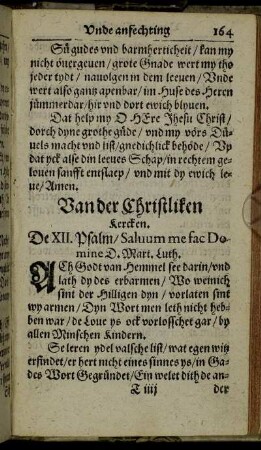 Vnde anfechting 164
Sü gudes vnd barmherticheit / kan my
nicht öuergeuen / grote Gnade wert my tho
jeder tydt / nauolgen in dem leeuen / Vnde
wert also gantz apenbar / im Huse des Heren
jümmerdar / hir vnd dort ewich blyuen.
Dat help my O HEre Jhesu Christ /
dorch dyne grothe güde / vnd my vörs Dü-
uels macht vnd list / gnedichlick behöde / Vp
dat yck alse din leeues Schap / in rechtem ge-
louen sanfft entslaep / vnd mit dy ewich le-
ue / Amen.
Van der Christliken
Kercken.
De XII. Psalm / Saluum me fac Do-
mine D. Mart. Luth.
ACh Godt van Hemmel see darin / vnd
lath dy des erbarmen / Wo weinich
sint der Hilligen dyn / vorlaten sint
wy armen / Dyn Wort men leth nicht heb-
ben war / de Loue ys ock vorlosschet gar / by
allen Minschen Kindern.
Se leren ydel valsche list / wat egen witz
erfindet / er hert nicht eines sinnes ys / in Ga-
des Wort Gegründet / Ein welet dith de an-
T iiij der